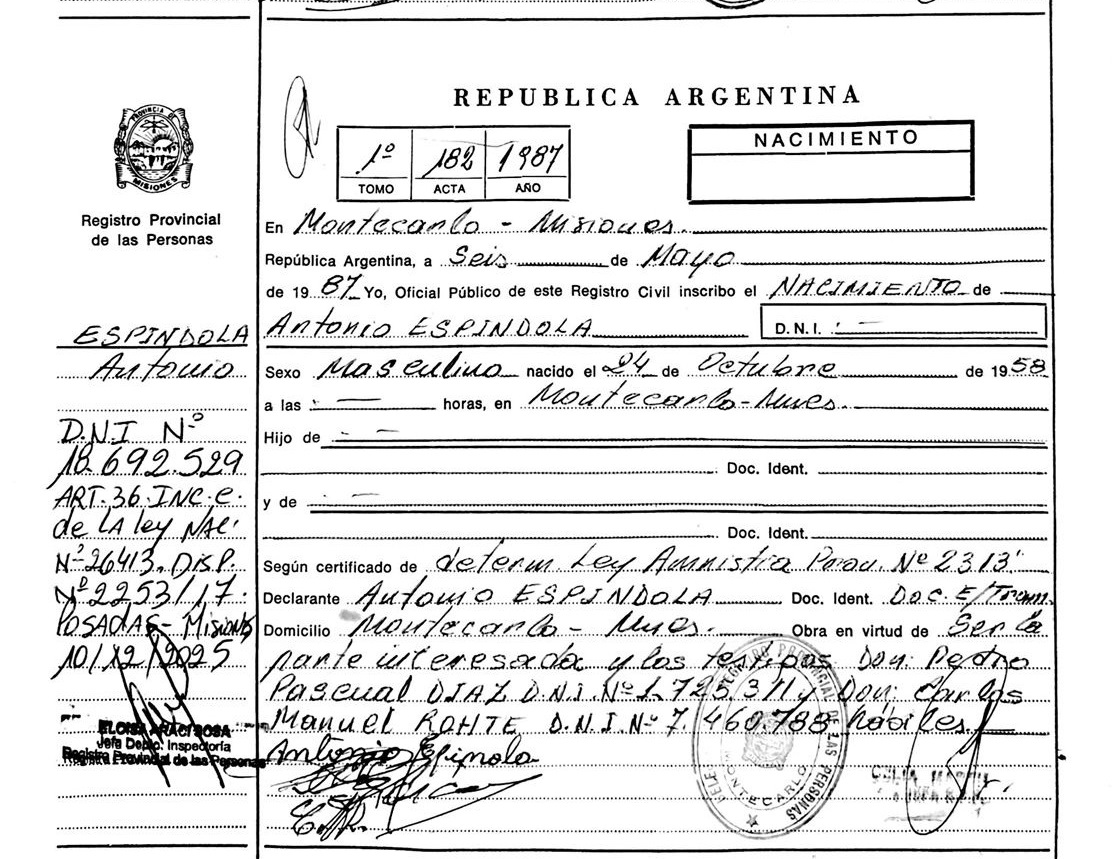 PROVINCIA DE
MISIONES
Registro Provincial
de las Personas
ESPINDOLA
Antonio
D.N.I Nº
18.692.529
ART. 36. INC. C.
de LA ley NAC.
Nº 26413. DISP.
Nº 2253/17.
POSADAS - Misiones
10/12/2025
ELOISA ARACI SOSA
Jefa Depto. Inspectoría
Registro Provincial de las Personas
REPUBLICA ARGENTINA
1º 182 1987
TOMO ACTA AÑO
NACIMIENTO
En Montecarlo - Misiones.
República Argentina, a Seis de Mayo
de 1987 Yo, Oficial Público de este Registro Civil inscribo el NACIMIENTO de
Antonio ESPINDOLA D.N.I. : —
Sexo Masculino nacido el 24 de Octubre de 1958
a las : — horas, en Montecarlo - Mnes.
Hijo de : —
Doc. Ident.
y de : —
Doc. Ident.
Según certificado de determ Ley Amnistia Prov. Nº 2313
Declarante Antonio ESPINDOLA Doc. Ident. Doc. E/Trám.
Domicilio Montecarlo - Mnes. Obra en virtud de Ser la
parte interesada y los testigos Don: Pedro
Pascual DIAZ D.N.I. Nº 1.725.311 y Don: Carlos
Manuel ROHTE D.N.I. Nº 7.460.788 hábiles.
Antonio Espinola
REGISTRO PROVINCIAL DE LAS PERSONAS
MONTECARLO